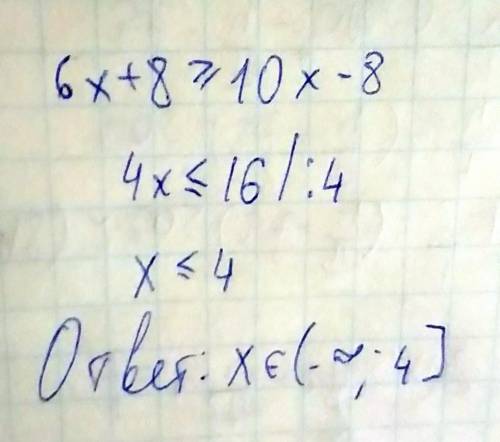 6x+8≥10x-8
4x≤16/:4
x≤4
Ответ: x∈(-∞; 4]